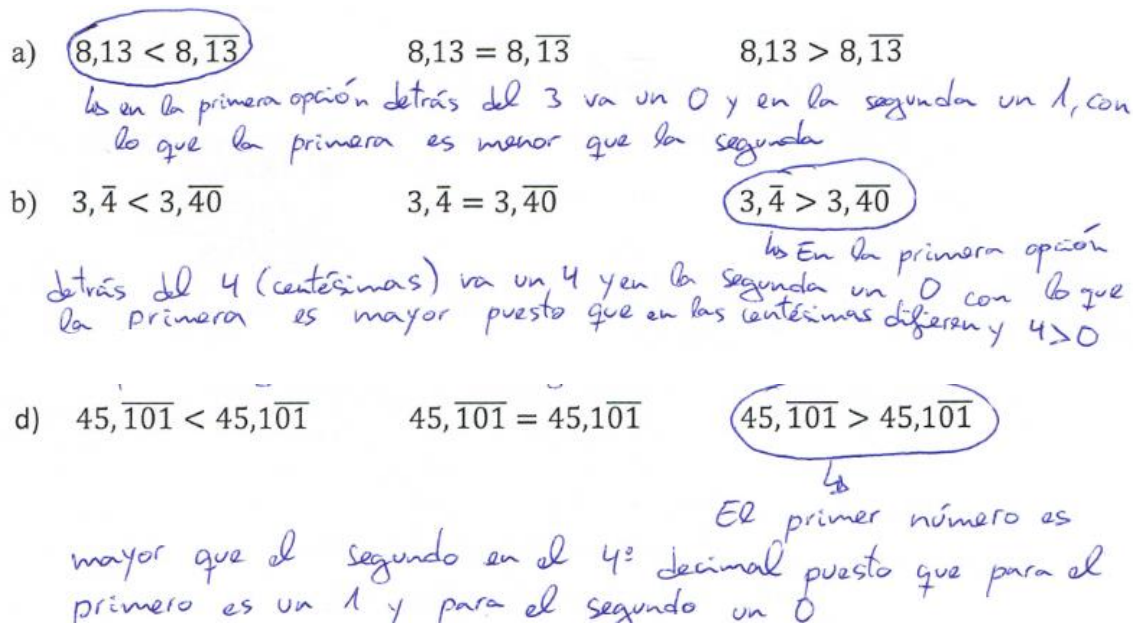 a) 8,13 < 8,1̅3̅ 8,13 = 8,1̅3̅ 8,13 > 8,1̅3̅
↳ en la primera opción detrás del 3 va un 0 y en la segunda un 1, con
lo que la primera es menor que la segunda
b) 3,4̅ < 3,4̅0̅ 3,4̅ = 3,4̅0̅ 3,4̅ > 3,4̅0̅
↳ En la primera opción
detrás del 4 (centésimas) va un 4 y en la segunda un 0 con lo que
la primera es mayor puesto que en las centésimas difieren y 4>0
d) 45,1̅0̅1̅ < 45,10̅1̅ 45,1̅0̅1̅ = 45,10̅1̅ 45,1̅0̅1̅ > 45,10̅1̅
↳
El primer número es
mayor que el segundo en el 4º decimal puesto que para el
primero es un 1 y para el segundo un 0